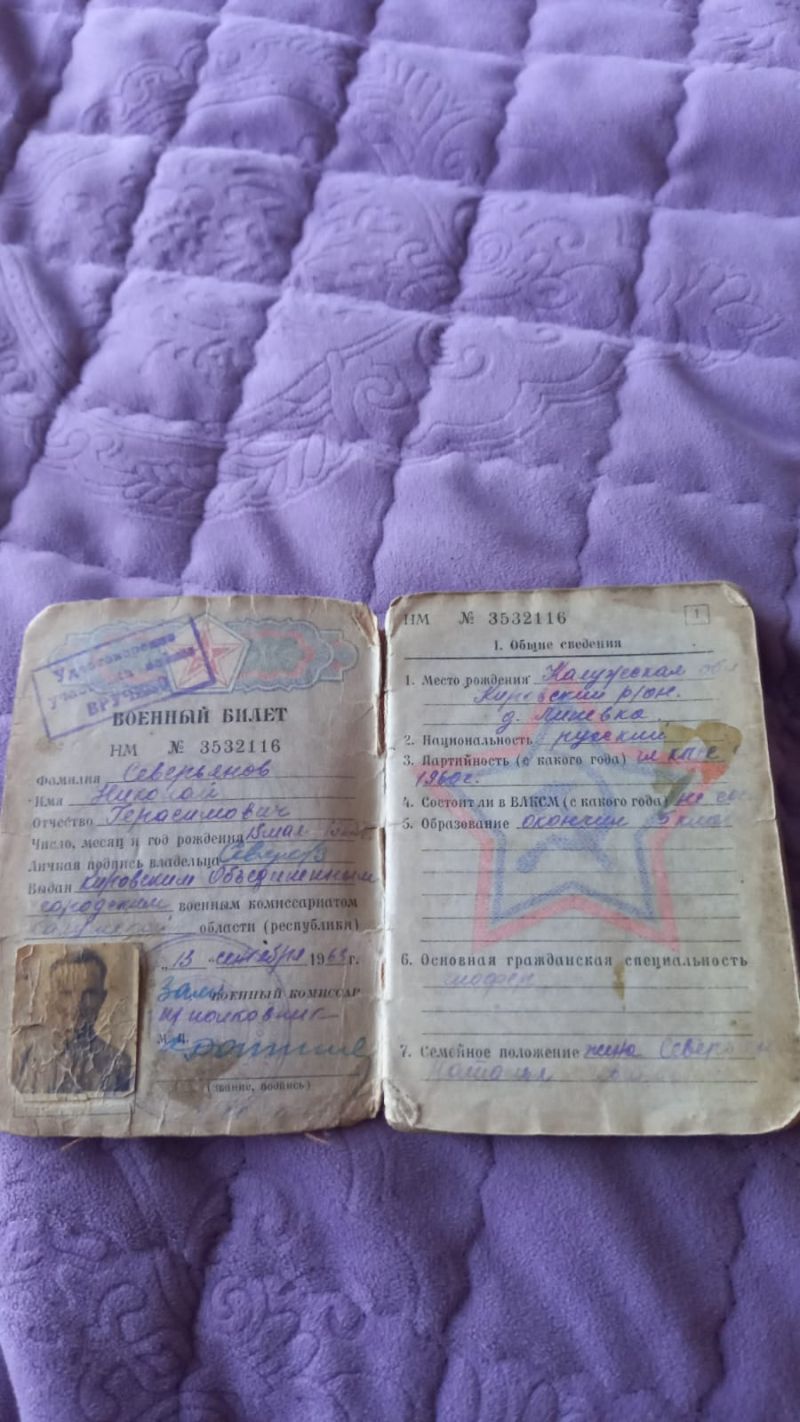 Удостоверение
участника войны
ВРУЧЕНО
ВОЕННЫЙ БИЛЕТ
НМ № 3532116
Фамилия Северьянов
Имя Николай
Отчество Герасимович
Число, месяц и год рождения 15 мая
Личная подпись владельца
Выдан Кировским Объединенным
городским военным комиссариатом
Калужской области (республики)
„13 " сентября 1963 г.
ВОЕННЫЙ КОМИССАР
п/полковник
М. П.
(звание, подпись)
НМ № 3532116
1
I. Общие сведения
1. Место рождения Калужская обл
Кировский р/он.
д.
2. Национальность русский
3. Партийность (с какого года) чл КПСС
1960г.
4. Состоит ли в ВЛКСМ (с какого года) не
5. Образование окончил
6. Основная гражданская специальность
шофер
7. Семейное положение жена
Наталья